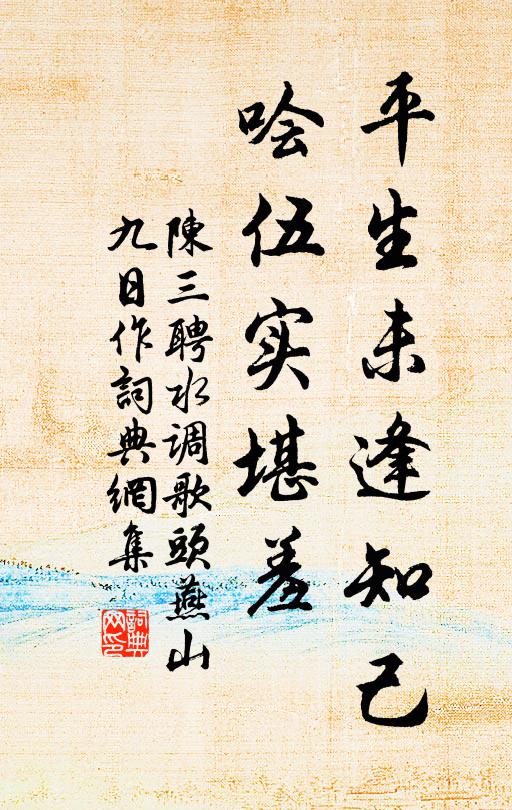 平生未逢知己
哙伍实堪羞
陳三聘水调歌頭燕山
九日作詞典網集
詞典
网印